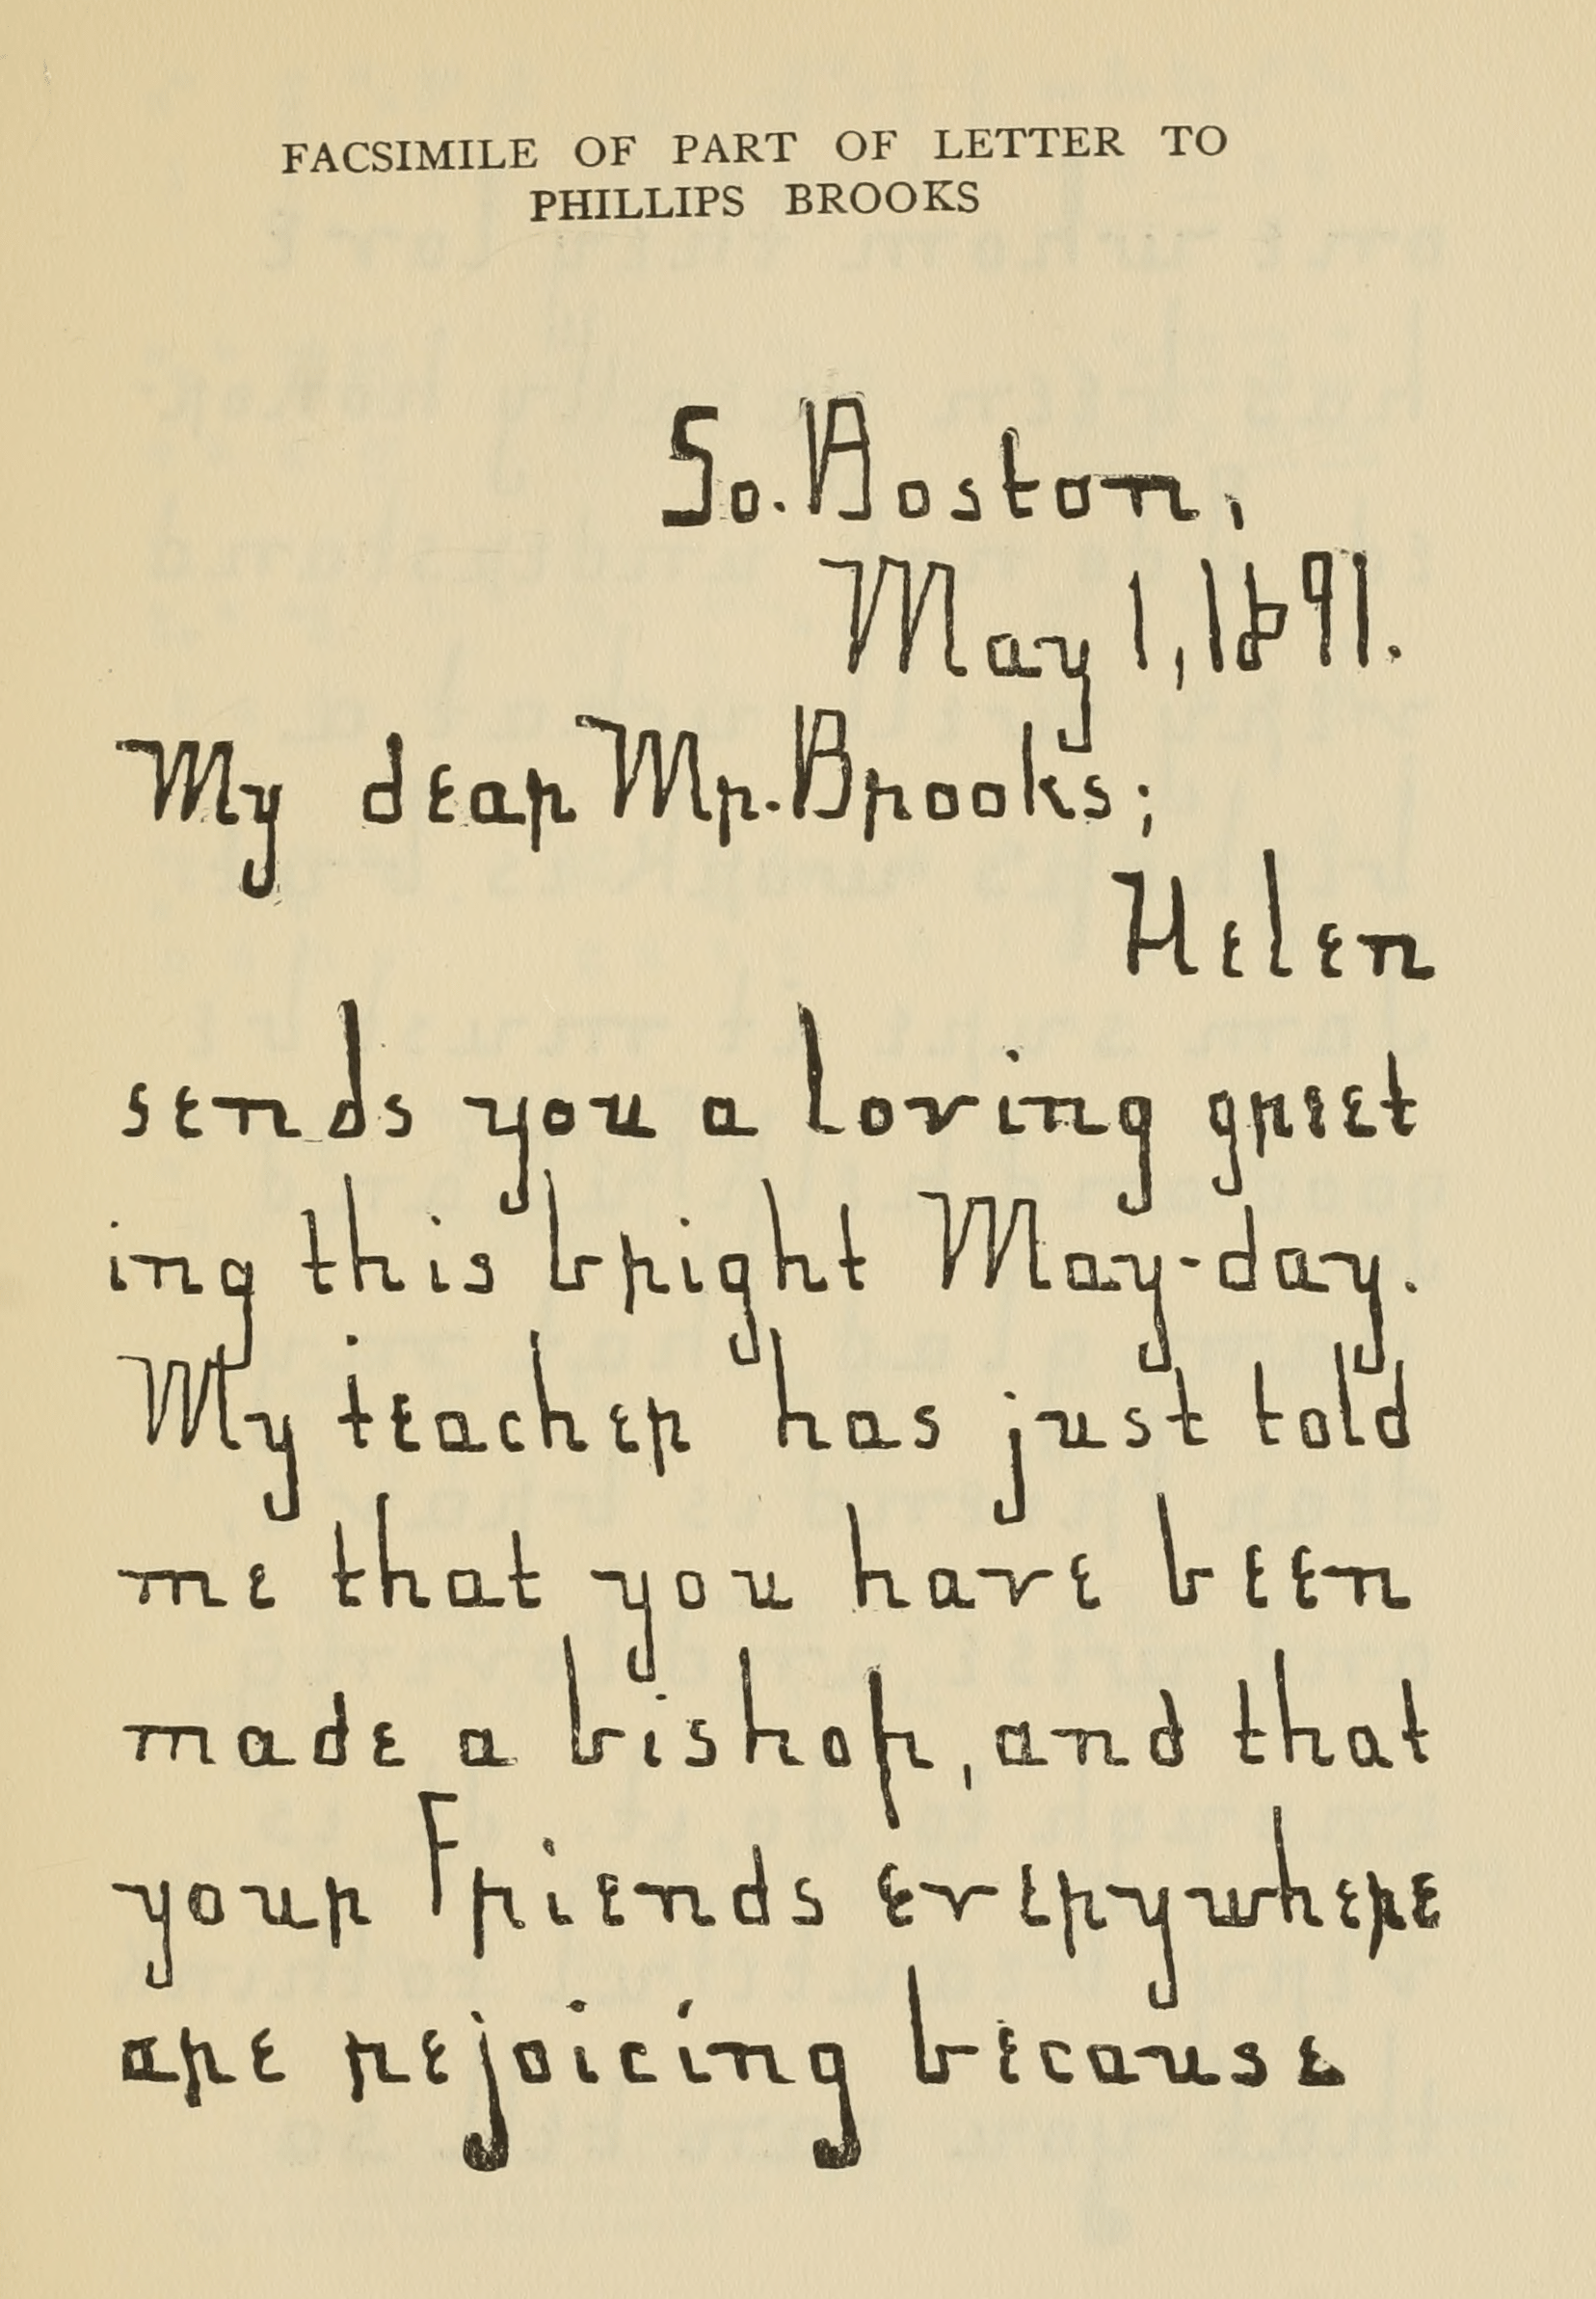 FACSIMILE OF PART OF LETTER TO
PHILLIPS BROOKS
So. Boston,
May 1, 1891.
My dear Mr. Brooks;
Helen
sends you a loving greet
ing this bright May-day.
My teacher has just told
me that you have been
made a bishop, and that
your Friends everywhere
are rejoicing because